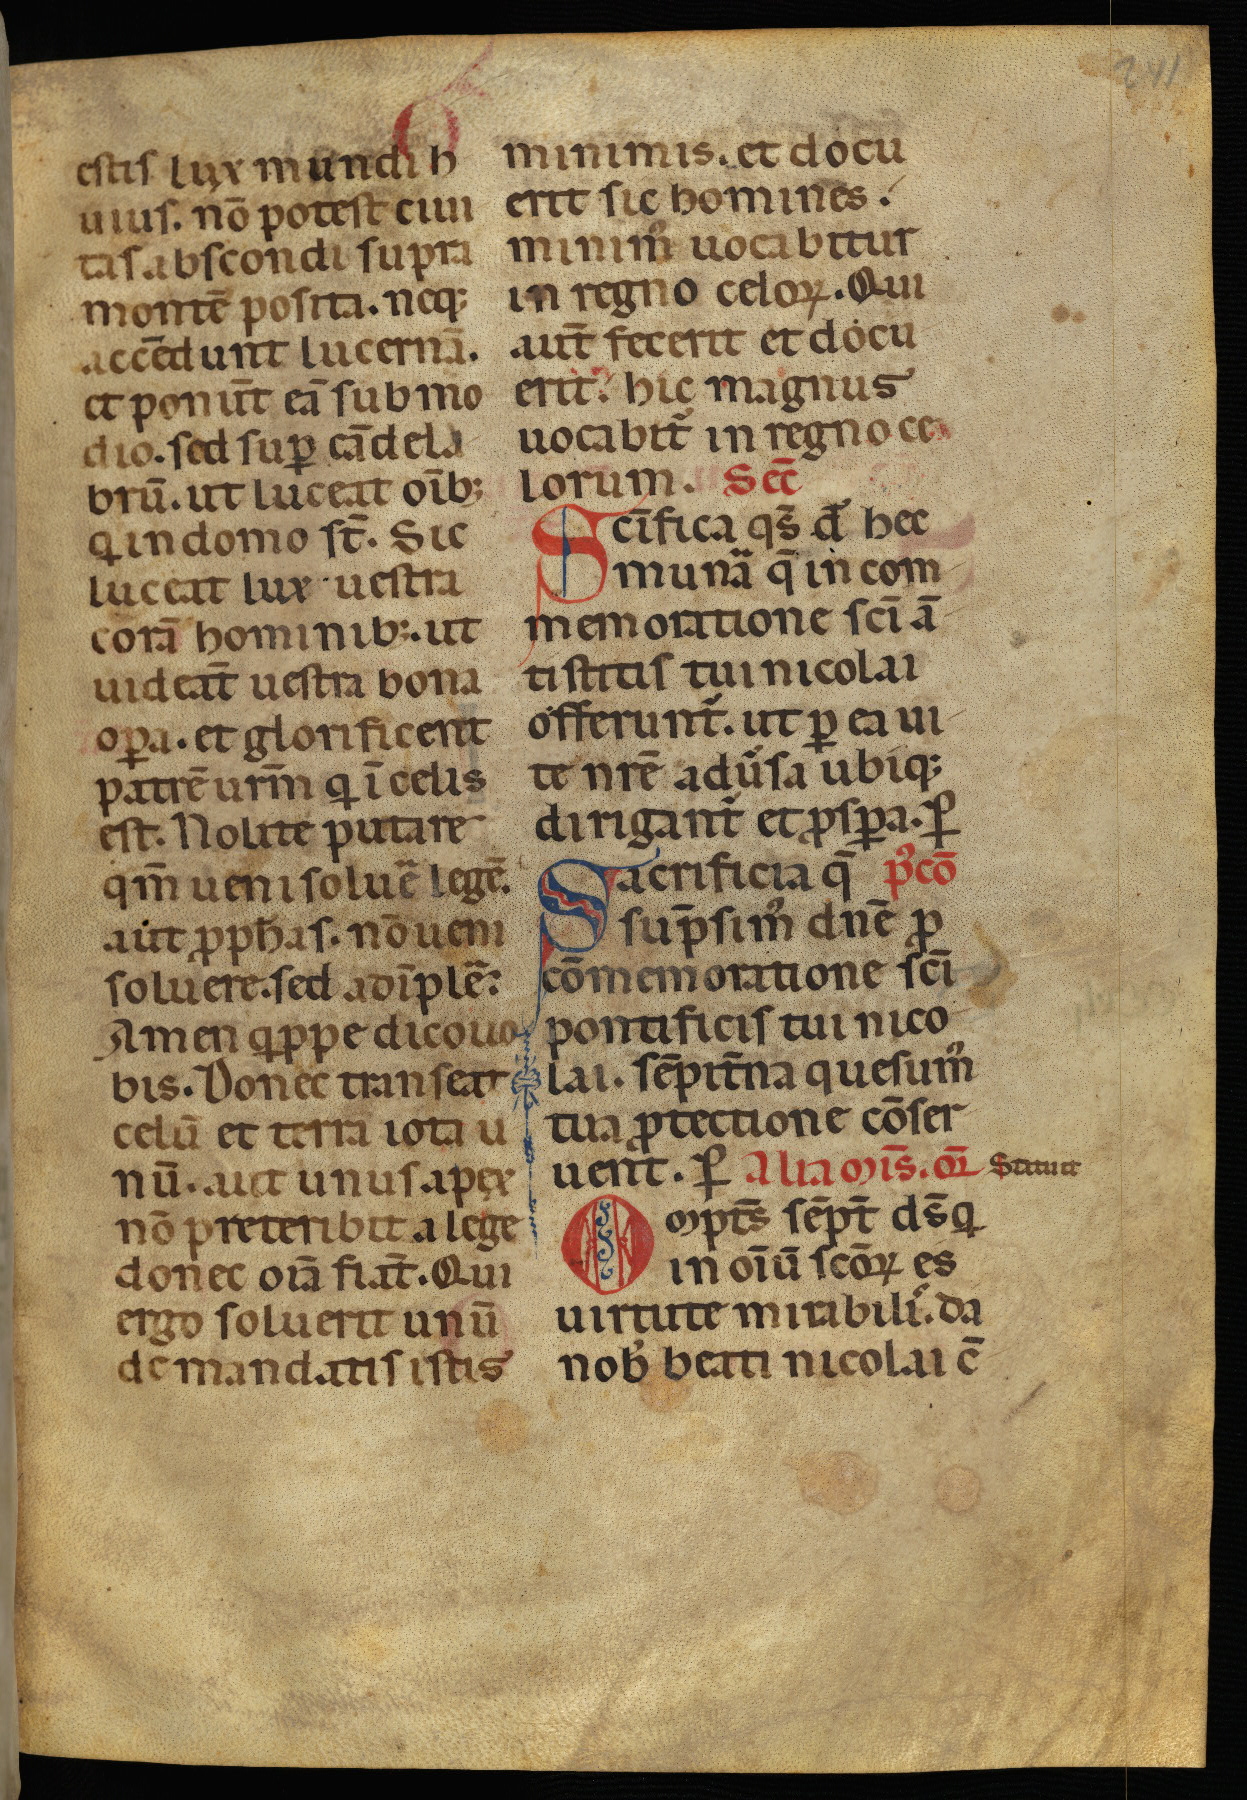 241
estis lux mundi h
uius. nō potest ciui
tas abscondi supra
montē posita. neq;
accēdunt lucernā.
et ponūt eā sub mo
dio. sed suꝑ cādela
brū. ut luceat oībꝫ
ꝗ in domo st̄. Sic
luceat lux uestra
corā hominibꝫ. ut
uideāt uestra bona
oꝑa. et glorificent
patrē urm̄ ꝗ ī celis
est. Nolite putare
qm̄ ueni soluē legē.
aut ꝓph̄as. nō ueni
soluere. sed adīplē.
Amen ꝗppe dico uo
bis. Donec transeat
celū et terra iota u
nū. aut unus apex
nō preteribit a lege
donec oīa fiāt. Qui
ergo soluerit unū
de mandatis istis
minimis. et docu
erit sic homines.
minimꝰ uocabitur
in regno celoꝝ. Qui
aut̄ fecerit et docu
erit. hic magnus
uocabit᷑ in regno ce
lorum. Sec̄
Scīfica qs̄ d̄ hec
munā q̄ in com
memoratione scī ā
tistitis tui nicolai
offerunt᷑. ut ꝑ ea ui
te nrē aduͥsa ubiq;
dirigant᷑ et ꝓspꝑa. ꝑ
Sacrificia q̄ pͦcō
sūpsimꝰ dn̄e ꝓ
cōmemoratione scī
pontificis tui nico
lai. sēpit̄na quesumꝰ
tua ꝓtectione cōser
uent. ꝑ Alia mīs. or̄ Statuit
Omps̄ sēpt̄ ds̄ ꝗ
in oīū scōꝝ es
uirtute mirabilis. da
nob̄ beati nicolai c̄